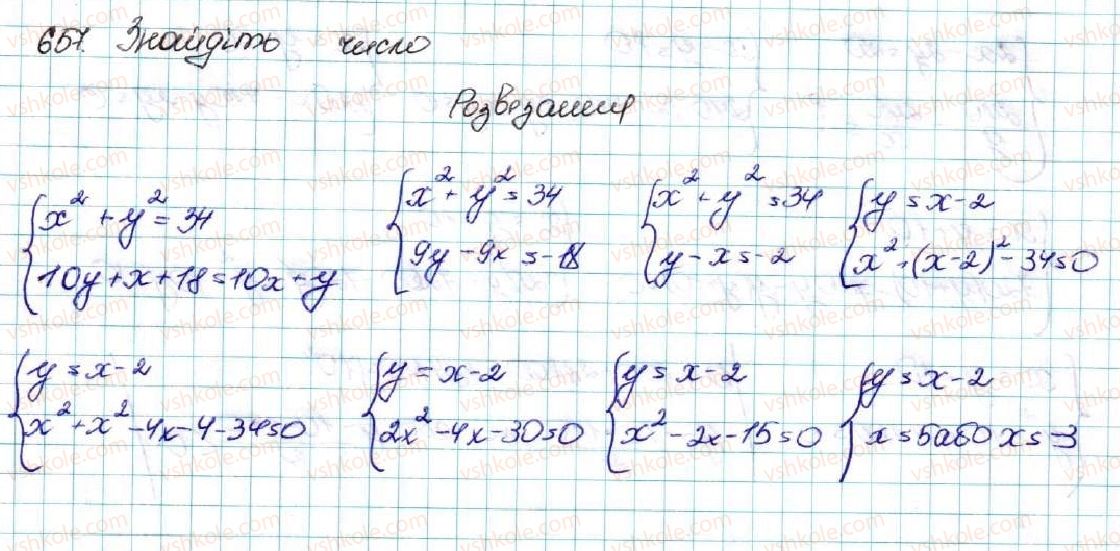 657. Знайдіть число
Розв'язання
{ x² + y² = 34
{ 10y + x + 18 = 10x + y
{ x² + y² = 34
{ 9y - 9x = -18
{ x² + y² = 34
{ y - x = -2
{ y = x - 2
{ x² + (x-2)² - 34 = 0
{ y = x - 2
{ x² + x² - 4x - 4 - 34 = 0
{ y = x - 2
{ 2x² - 4x - 30 = 0
{ y = x - 2
{ x² - 2x - 15 = 0
{ y = x - 2
{ x = 5 або x = -3
vshkole.com